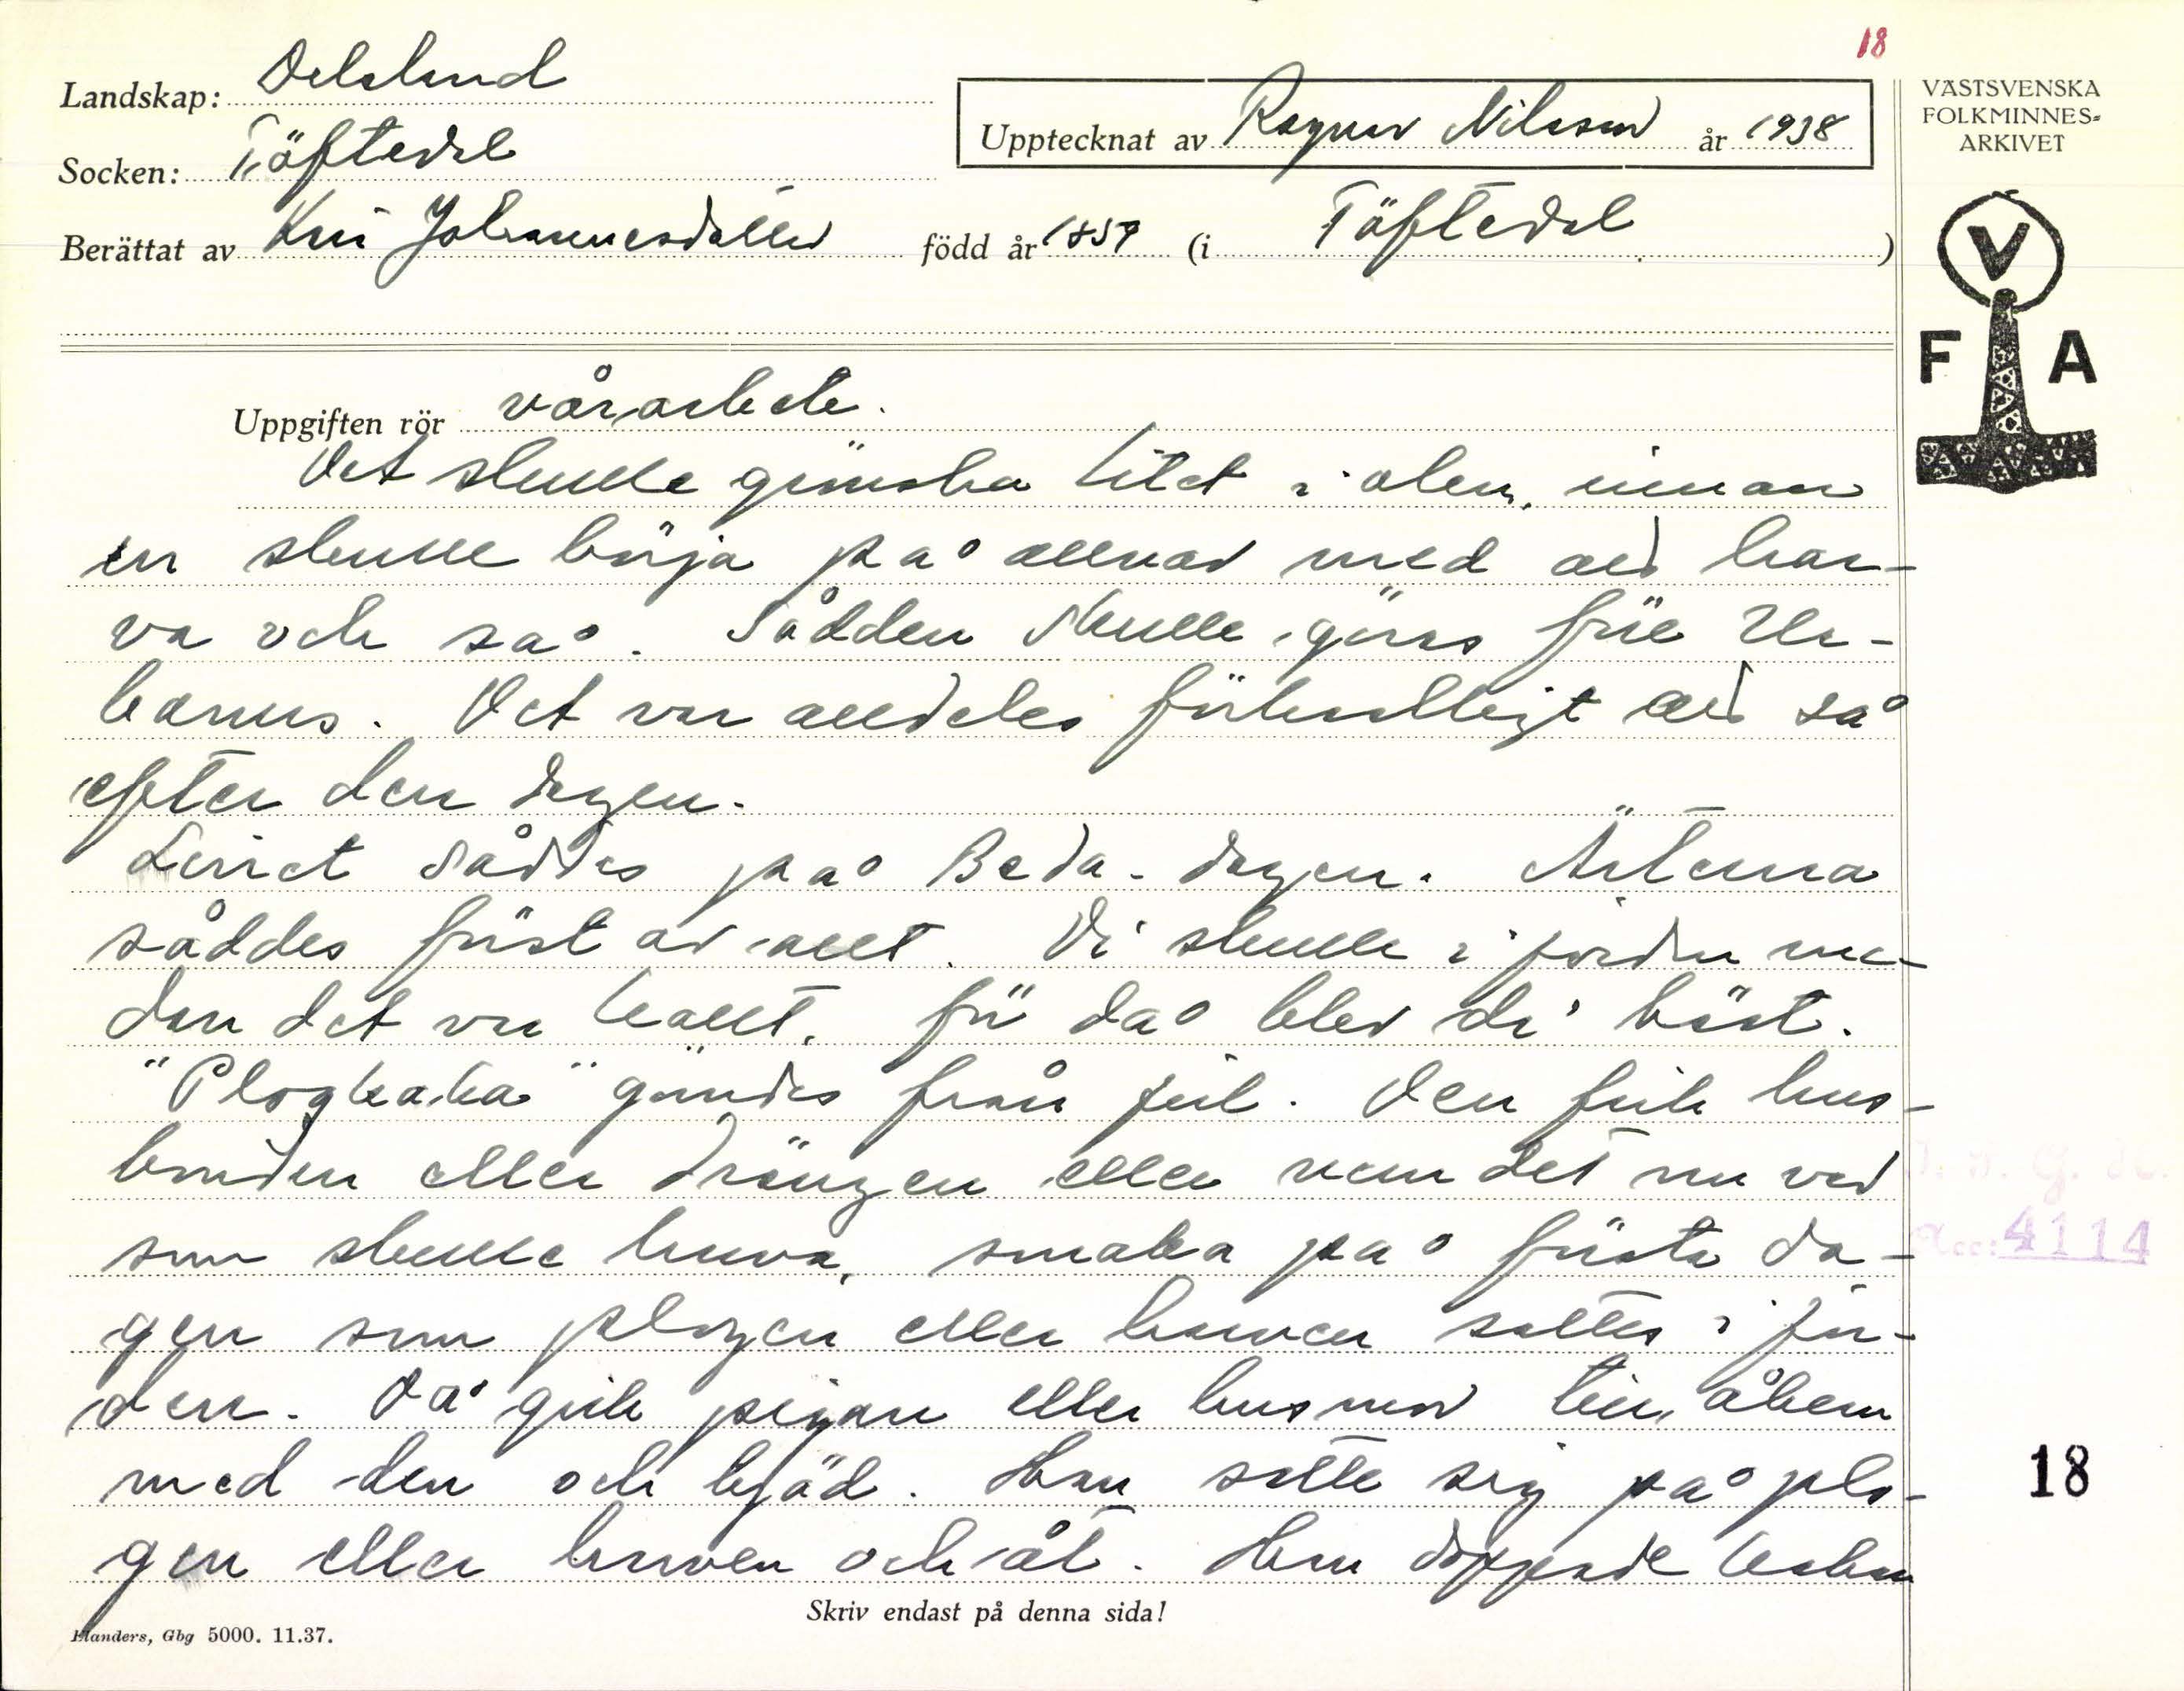 18
Landskap: Dalsland
Upptecknat av Ragnar Nilsson år 1938
VÄSTSVENSKA
FOLKMINNES=
ARKIVET
Socken: Töftedal
Berättat av Johannesdotter född år 1859 (i Töftedal)
V
F A
Uppgiften rör vårarbete.
Det skulle grönska litet i alen, innan
en skulle börja på allvar med att har-
va och så. Sådden skulle göras före Ur-
banus. Det var alldeles förkastligt att så
efter den dagen.
Linet såddes på Beda-dagen. Ärterna
såddes först av allt. Di skulle i jorden me-
dan det var kallt, för då blev di bäst.
"Plogkaka" gömdes från jul. Den fick hus-
bonden eller drängen eller vem det nu var
som skulle harva, smaka på första da-
gen som plogen eller harven sattes i jor-
den. Då gick pigan eller husmor till åkern
med den och bjöd. Han satte sig på plo-
gen eller harven och åt. Han doppade kakan
Acc: 4114
18
Skriv endast på denna sida!
Elanders, Gbg 5000. 11.37.